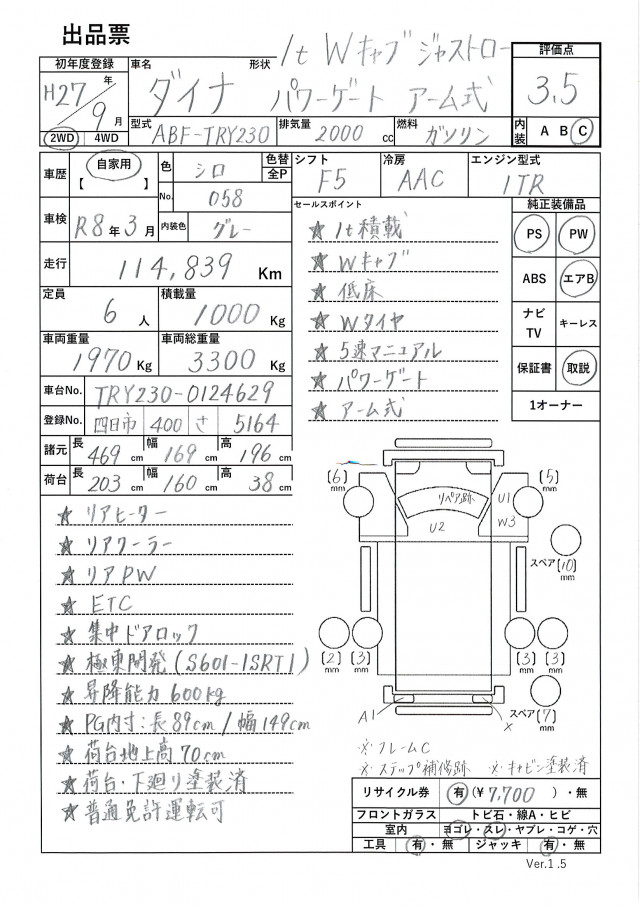 出品票
1t Wキャブ ジャストロー
初年度登録 車名 形状 評価点
H27年 9月 ダイナ パワーゲート アーム式 3.5
2WD 4WD 型式 ABF-TRY230 排気量 2000 cc 燃料 ガソリン 内装 A B C
車歴 自家用 【 】 色 シロ 色替 全P シフト F5 冷房 AAC エンジン型式 1TR
No. 058
車検 R8年3月 内装色 グレー
走行 114,839 Km
定員 6人 積載量 1000 Kg
車両重量 1970 Kg 車両総重量 3300 Kg
車台No. TRY230-0124629
登録No. 四日市 400 さ 5164
諸元 長 469 cm 幅 169 cm 高 196 cm
荷台 長 203 cm 幅 160 cm 高 38 cm
セールスポイント
★ 1t積載
★ Wキャブ
★ 低床
★ Wタイヤ
★ 5速マニュアル
★ パワーゲート
★ アーム式
純正装備品
PS PW
ABS エアB
ナビ TV キーレス
保証書 取説
1オーナー
★ リアヒーター
★ リアクーラー
★ リアPW
★ ETC
★ 集中ドアロック
★ 極東開発(S601-1SRT1)
★ 昇降能力600kg
★ PG内寸:長89cm/幅149cm
★ 荷台地上高70cm
★ 荷台・下廻り塗装済
★ 普通免許運転可
(6) mm (5) mm
リペア跡 U1
U2 W3
スペア (10) mm
(2) mm (3) mm (3) mm (3) mm
スペア (7) mm
A1 X
※ フレームC
※ ステップ補修跡 ※ キャビン塗装済
リサイクル券 有 (¥7,700)・無
フロントガラス トビ石・線A・ヒビ
室内 ヨゴレ・スレ・ヤブレ・コゲ・穴
工具 有・無 ジャッキ 有・無
Ver.1.5